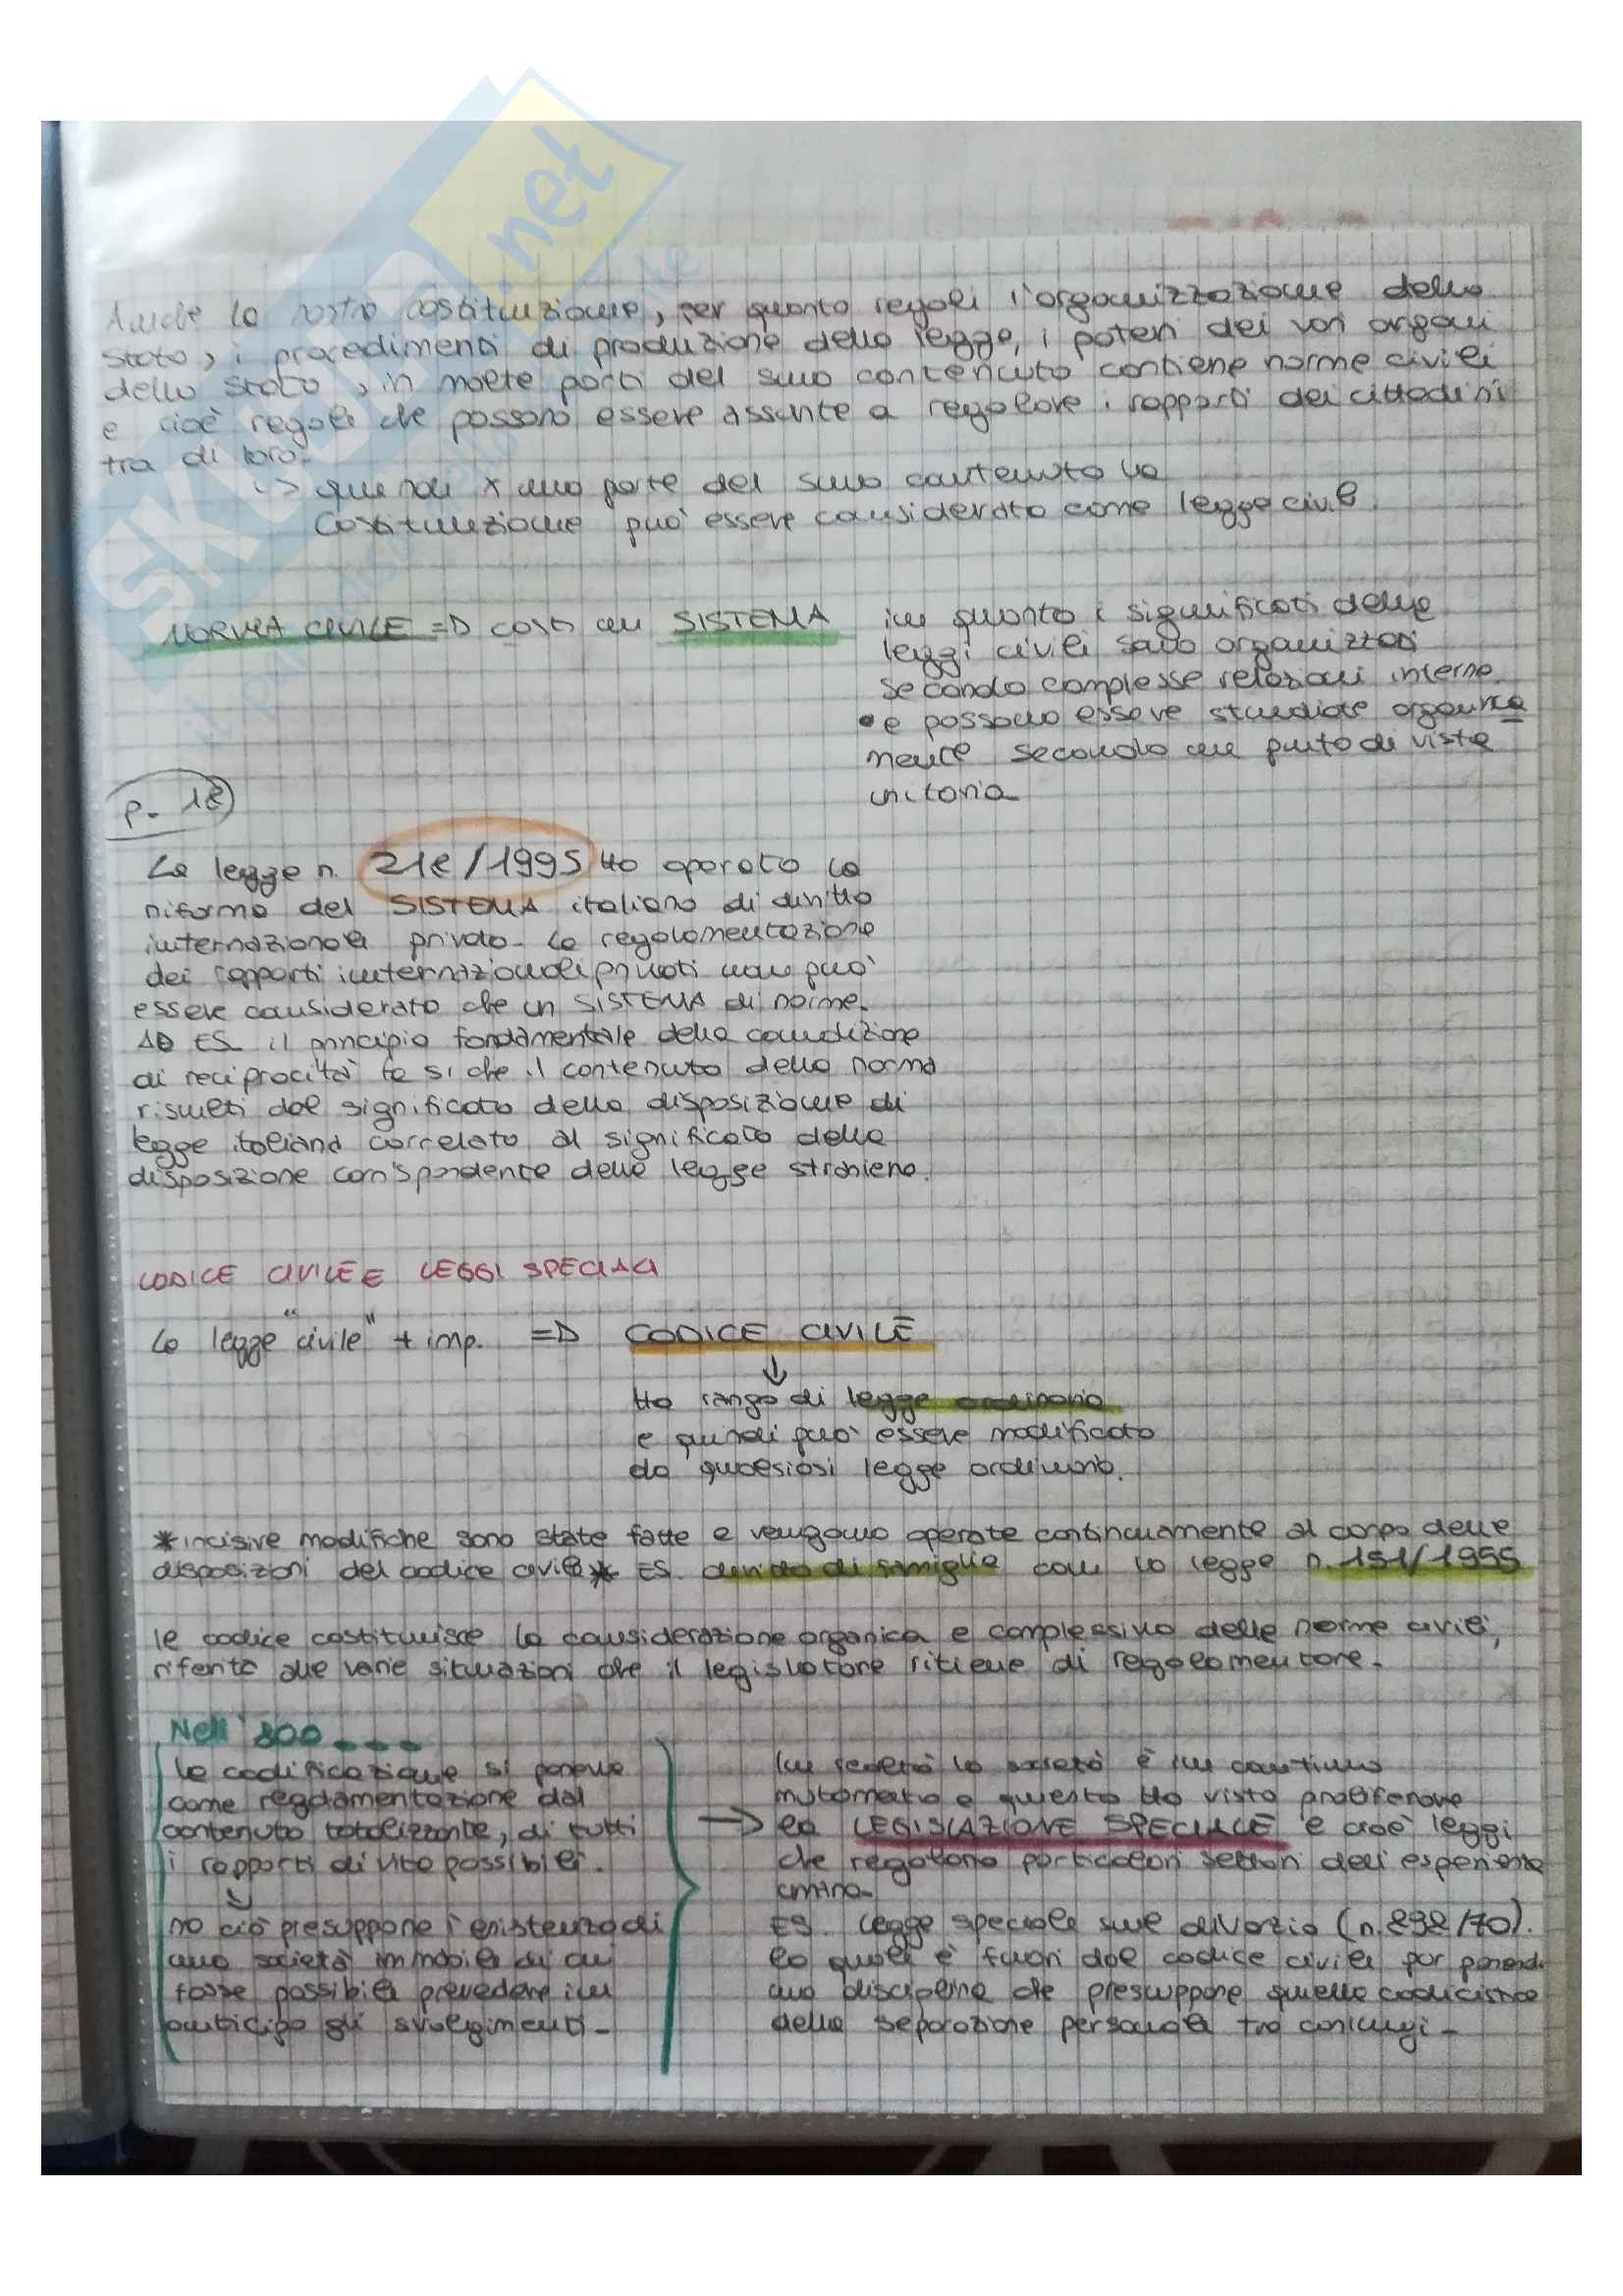 Anche la nostra costituzione, per quanto regoli l'organizzazione dello
Stato, i procedimenti di produzione della legge, i poteri dei vari organi
dello Stato, in molte parti del suo contenuto contiene norme civili
e cioè regole che possono essere assunte a regolare i rapporti dei cittadini
tra di loro.
-> quindi x una parte del suo contenuto la
Costituzione può essere considerata come legge civile.
NORMA CIVILE => cost. un SISTEMA
in quanto i significati delle
leggi civili sono organizzati
secondo complesse relazioni interne
• e possono essere studiate organica
mente secondo un punto di vista
unitario
p. 18
La legge n. 218/1995 ha operato la
riforma del SISTEMA italiano di diritto
internazionale privato. La regolamentazione
dei rapporti internazionali privati non può
essere considerata che un SISTEMA di norme.
ES. il principio fondamentale della condizione
di reciprocità fa si che il contenuto della norma
risulti dal significato della disposizione di
legge italiana correlato al significato della
disposizione corrispondente della legge straniera.
CODICE CIVILE E LEGGI SPECIALI
La legge "civile" + imp. => CODICE CIVILE
↓
Ha rango di legge ordinaria
e quindi può essere modificato
da qualsiasi legge ordinaria.
*incisive modifiche sono state fatte e vengono operate continuamente al corpo delle
disposizioni del codice civile* ES. diritto di famiglia con la legge n. 151/1955
Il codice costituisce la considerazione organica e complessiva delle norme civili,
riferite alle varie situazioni che il legislatore ritiene di regolamentare.
Nell'800...
la codificazione si poneva
come regolamentazione dal
contenuto totalizzante, di tutti
i rapporti di vita possibili.
↓
ma ciò presuppone l'esistenza di
una società immobile di cui
fosse possibile prevedere in
anticipo gli svolgimenti.
In realtà la società è in continuo
mutamento e questo ha visto proliferare
-> la LEGISLAZIONE SPECIALE e cioè leggi
che regolano particolari settori dell'esperienza
umana.
ES. Legge speciale sul divorzio (n. 898/70).
la quale è fuori dal codice civile pur ponendo
una disciplina che presuppone quella codicistica
della separazione personale tra coniugi.
SKUOLA.net